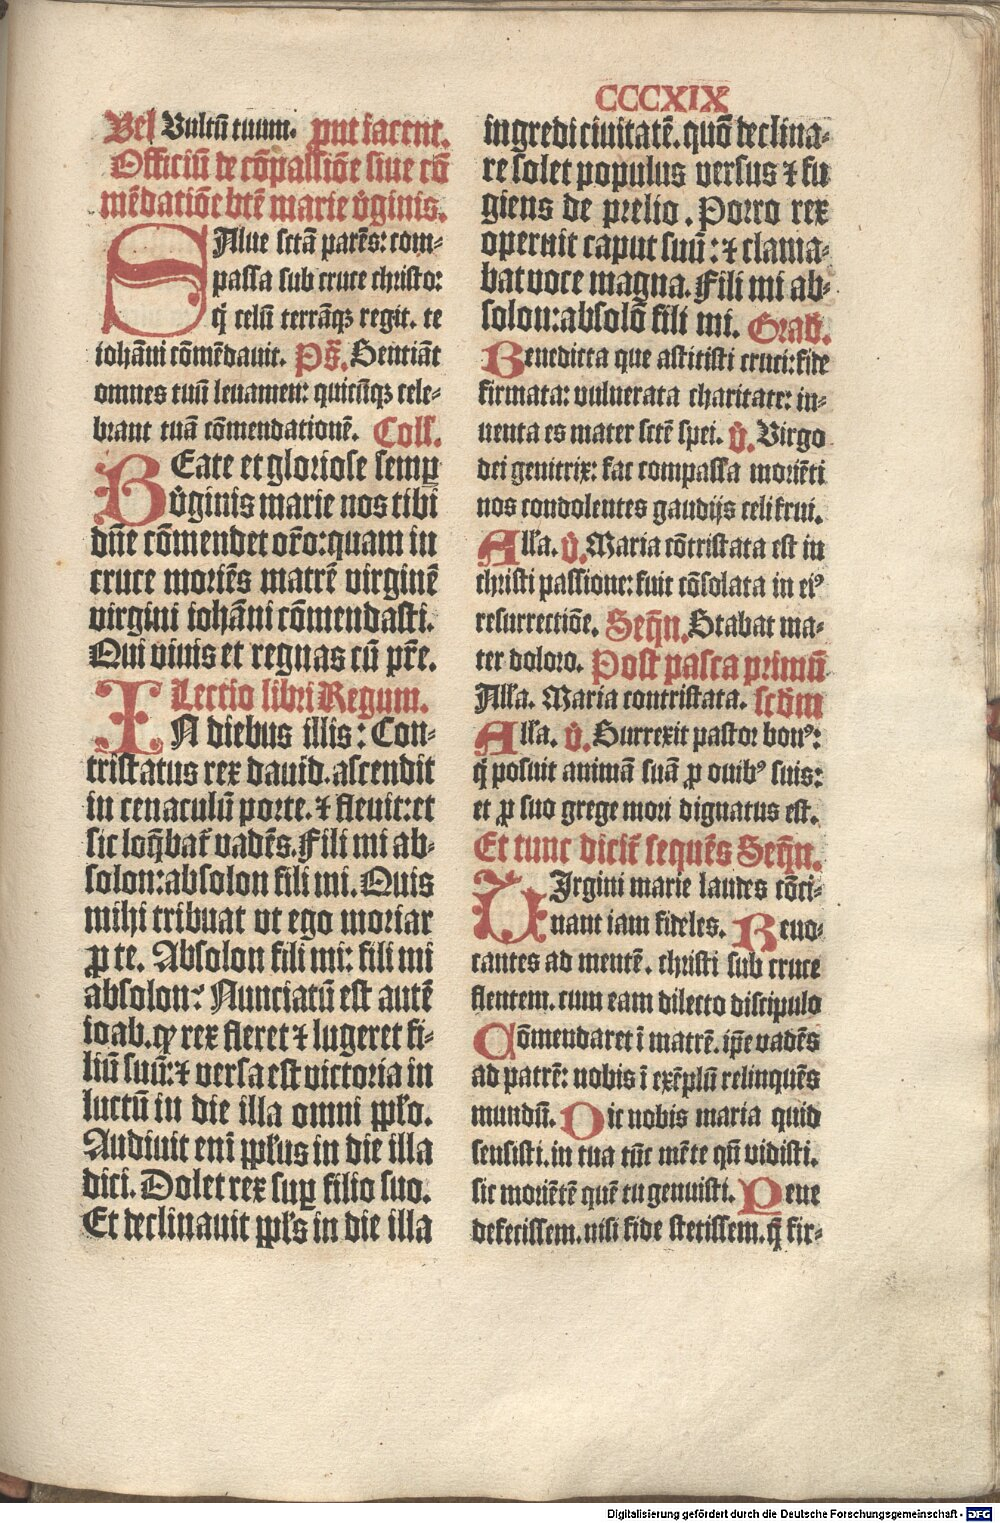 CCCXIX
Vel Vultū tuum. put iacent.
Officiū de cōpassiōe siue cō
mēdatiōe btē marie v̉ginis.
SAlue sctā parēs: com⸗
passa sub cruce christo:
q̇ celū terrāqꝫ regit. te
iohāni cōmēdauit. Ps̄. Sentiāt
omnes tuū leuamen: quicūqꝫ cele⸗
brant tuā cōmendationē. Coll.
BEate et gloriose semꝑ
v̉ginis marie nos tibi
dn̄e cōmendet or̄o: quam in
cruce moriēs matrē virginē
virgini iohāni cōmendasti.
Qui viuis et regnas cū pr̄e.
Lectio libri Regum.
IN diebus illis: Con⸗
tristatus rex dauid. ascendit
in cenaculū porte. ⁊ fleuit: et
sic loq̄bat̄ vadēs. Fili mi ab⸗
solon: absolon fili mi. Quis
mihi tribuat vt ego moriar
ꝓ te. Absolon fili mi: fili mi
absolon? Nunciatū est autē
ioab. ꝙ rex fleret ⁊ lugeret fi⸗
liū suū: ⁊ versa est victoria in
luctū in die illa omni ppl̄o.
Audiuit enī ppl̄us in die illa
dici. Dolet rex suꝑ filio suo.
Et declinauit ppl̄s in die illa
ingredi ciuitatē. quō declina⸗
re solet populus versus ⁊ fu
giens de prelio. Porro rex
operuit caput suū: ⁊ clama⸗
bat voce magna. Fili mi ab⸗
solon: absolō fili mi. Grad.
Benedicta que astitisti cruci: fide
firmata: vulnerata charitate: in⸗
uenta es mater sctē spei. v̉. Virgo
dei genitrix: fac compassa moriēti
nos condolentes gaudijs celi frui.
Alla. v̉. Maria cōtristata est in
christi passione: fuit cōsolata in eiꝰ
resurrectiōe. Seq̄n. Stabat ma⸗
ter doloro. Post pasca primū
Alla. Maria contristata. scdm
Alla. v̉. Surrexit pastor bonꝰ:
q̇ posuit animā suā ꝓ ouibꝰ suis:
et ꝓ suo grege mori dignatus est.
Et tunc dicit̄ sequēs Seq̄n.
VIrgini marie laudes cōci⸗
nant iam fideles. Reuo⸗
cantes ad mentē. christi sub cruce
flentem. cum eam dilecto discipulo
Cōmendaret ī matrē. ip̄e vadēs
ad patrē: nobis ī exēplū relinquēs
mundū. Dic nobis maria quid
sensisti. in tua tūc mēte qn̄ vidisti.
sic moriētē quē tu genuisti. Pene
defecissem. nisi fide stetissem. q̄ fir⸗
Digitalisierung gefördert durch die Deutsche Forschungsgemeinschaft - DFG